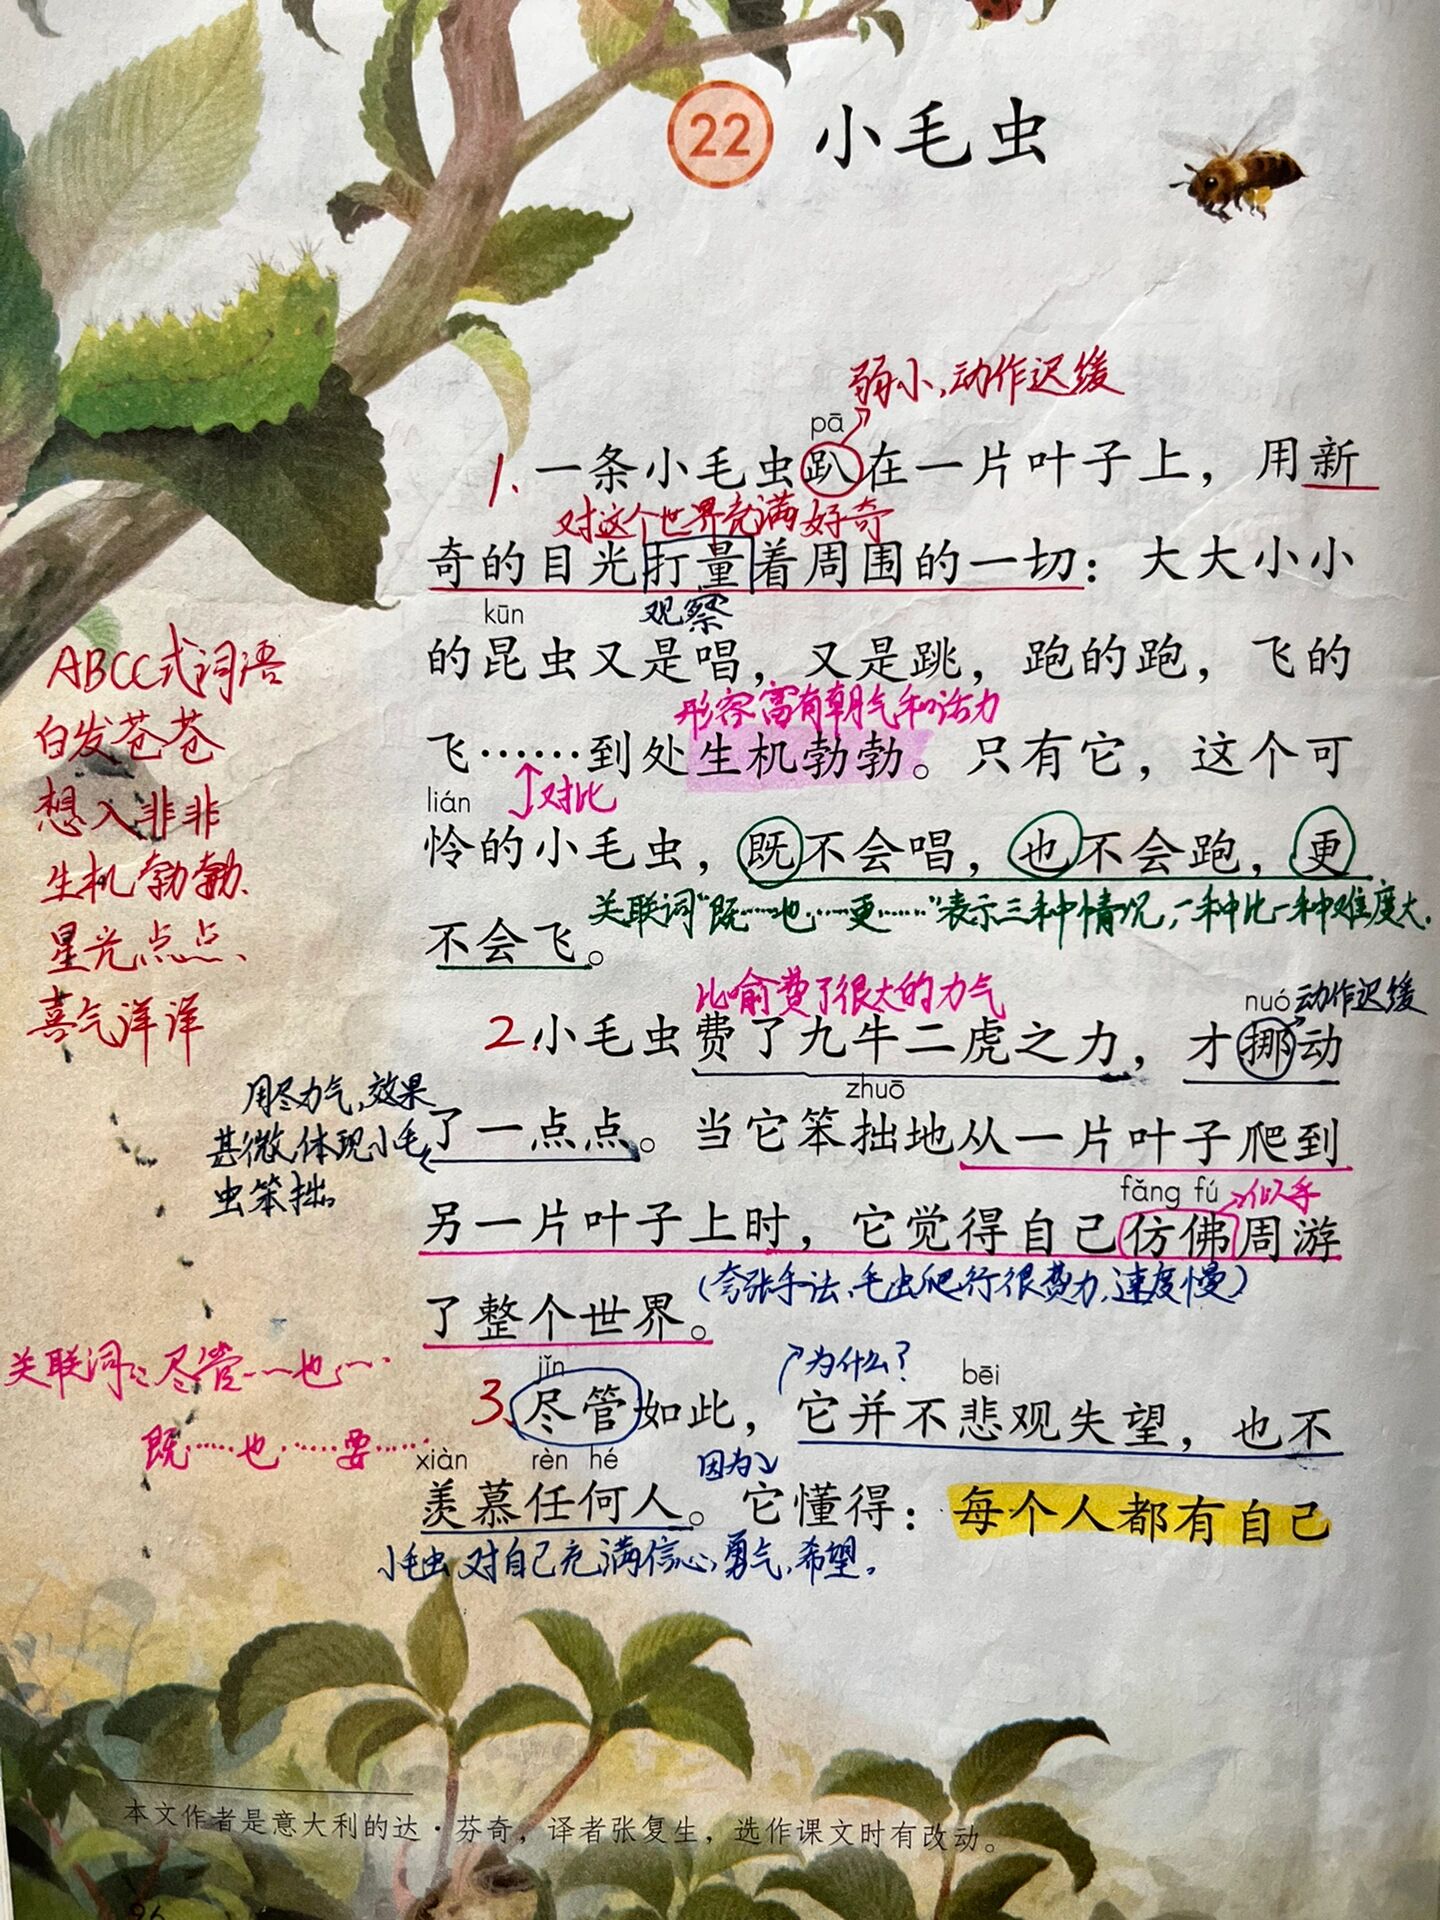 22 小毛虫
弱小、动作迟缓
pā
1. 一条小毛虫趴在一片叶子上，用新
对这个世界充满好奇
奇的目光打量着周围的一切：大大小小
kūn
观察
的昆虫又是唱，又是跳，跑的跑，飞的
形容富有朝气和活力
飞……到处生机勃勃。只有它，这个可
lián
对比
怜的小毛虫，既不会唱，也不会跑，更
关联词“既……也……更……”表示三种情况，一种比一种难度大.
不会飞。
ABCC式词语
白发苍苍
想入非非
生机勃勃、
星光点点、
喜气洋洋
比喻费了很大的力气
nuó 动作迟缓
2. 小毛虫费了九牛二虎之力，才挪动
zhuō
了一点点。当它笨拙地从一片叶子爬到
用尽力气，效果
甚微，体现小毛
虫笨拙。
fǎng fú 似乎
另一片叶子上时，它觉得自己仿佛周游
（夸张手法、毛虫爬行很费力，速度慢）
了整个世界。
关联词：尽管……也……
既……也……要……
为什么？
jǐn
bēi
3. 尽管如此，它并不悲观失望，也不
xiàn rèn hé
因为
羡慕任何人。它懂得：每个人都有自己
小毛虫对自己充满信心，勇气，希望。
本文作者是意大利的达·芬奇，译者张复生，选作课文时有改动。
96